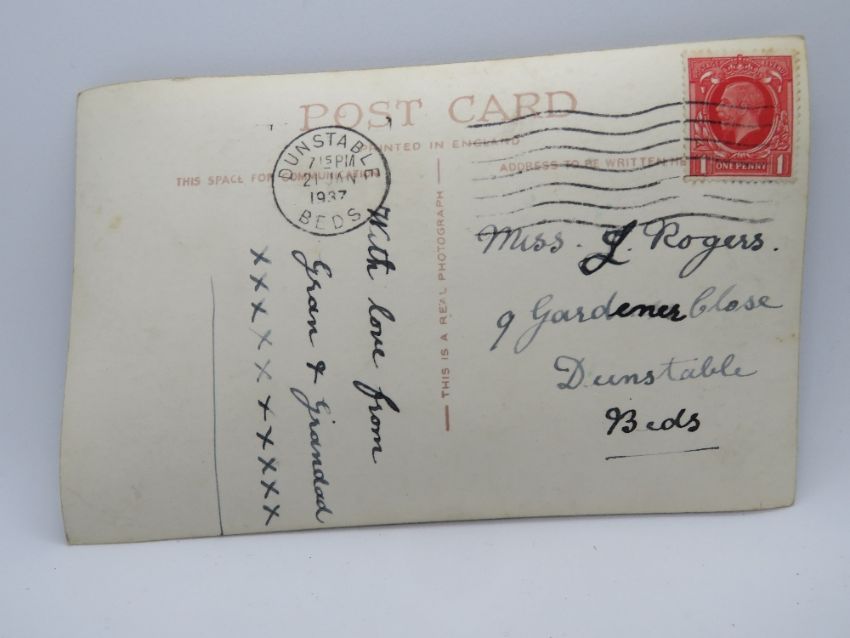 POST CARD
PRINTED IN ENGLAND
THIS SPACE FOR COMMUNICATION
ADDRESS TO BE WRITTEN HE
THIS IS A REAL PHOTOGRAPH
DUNSTABLE
7 15 PM
21 JAN
1937
BEDS
1 ONE PENNY 1
With love from
Gran & Grandad
x x x x x x x x x x
Miss. J. Rogers.
9 Gardener Close
Dunstable
Beds